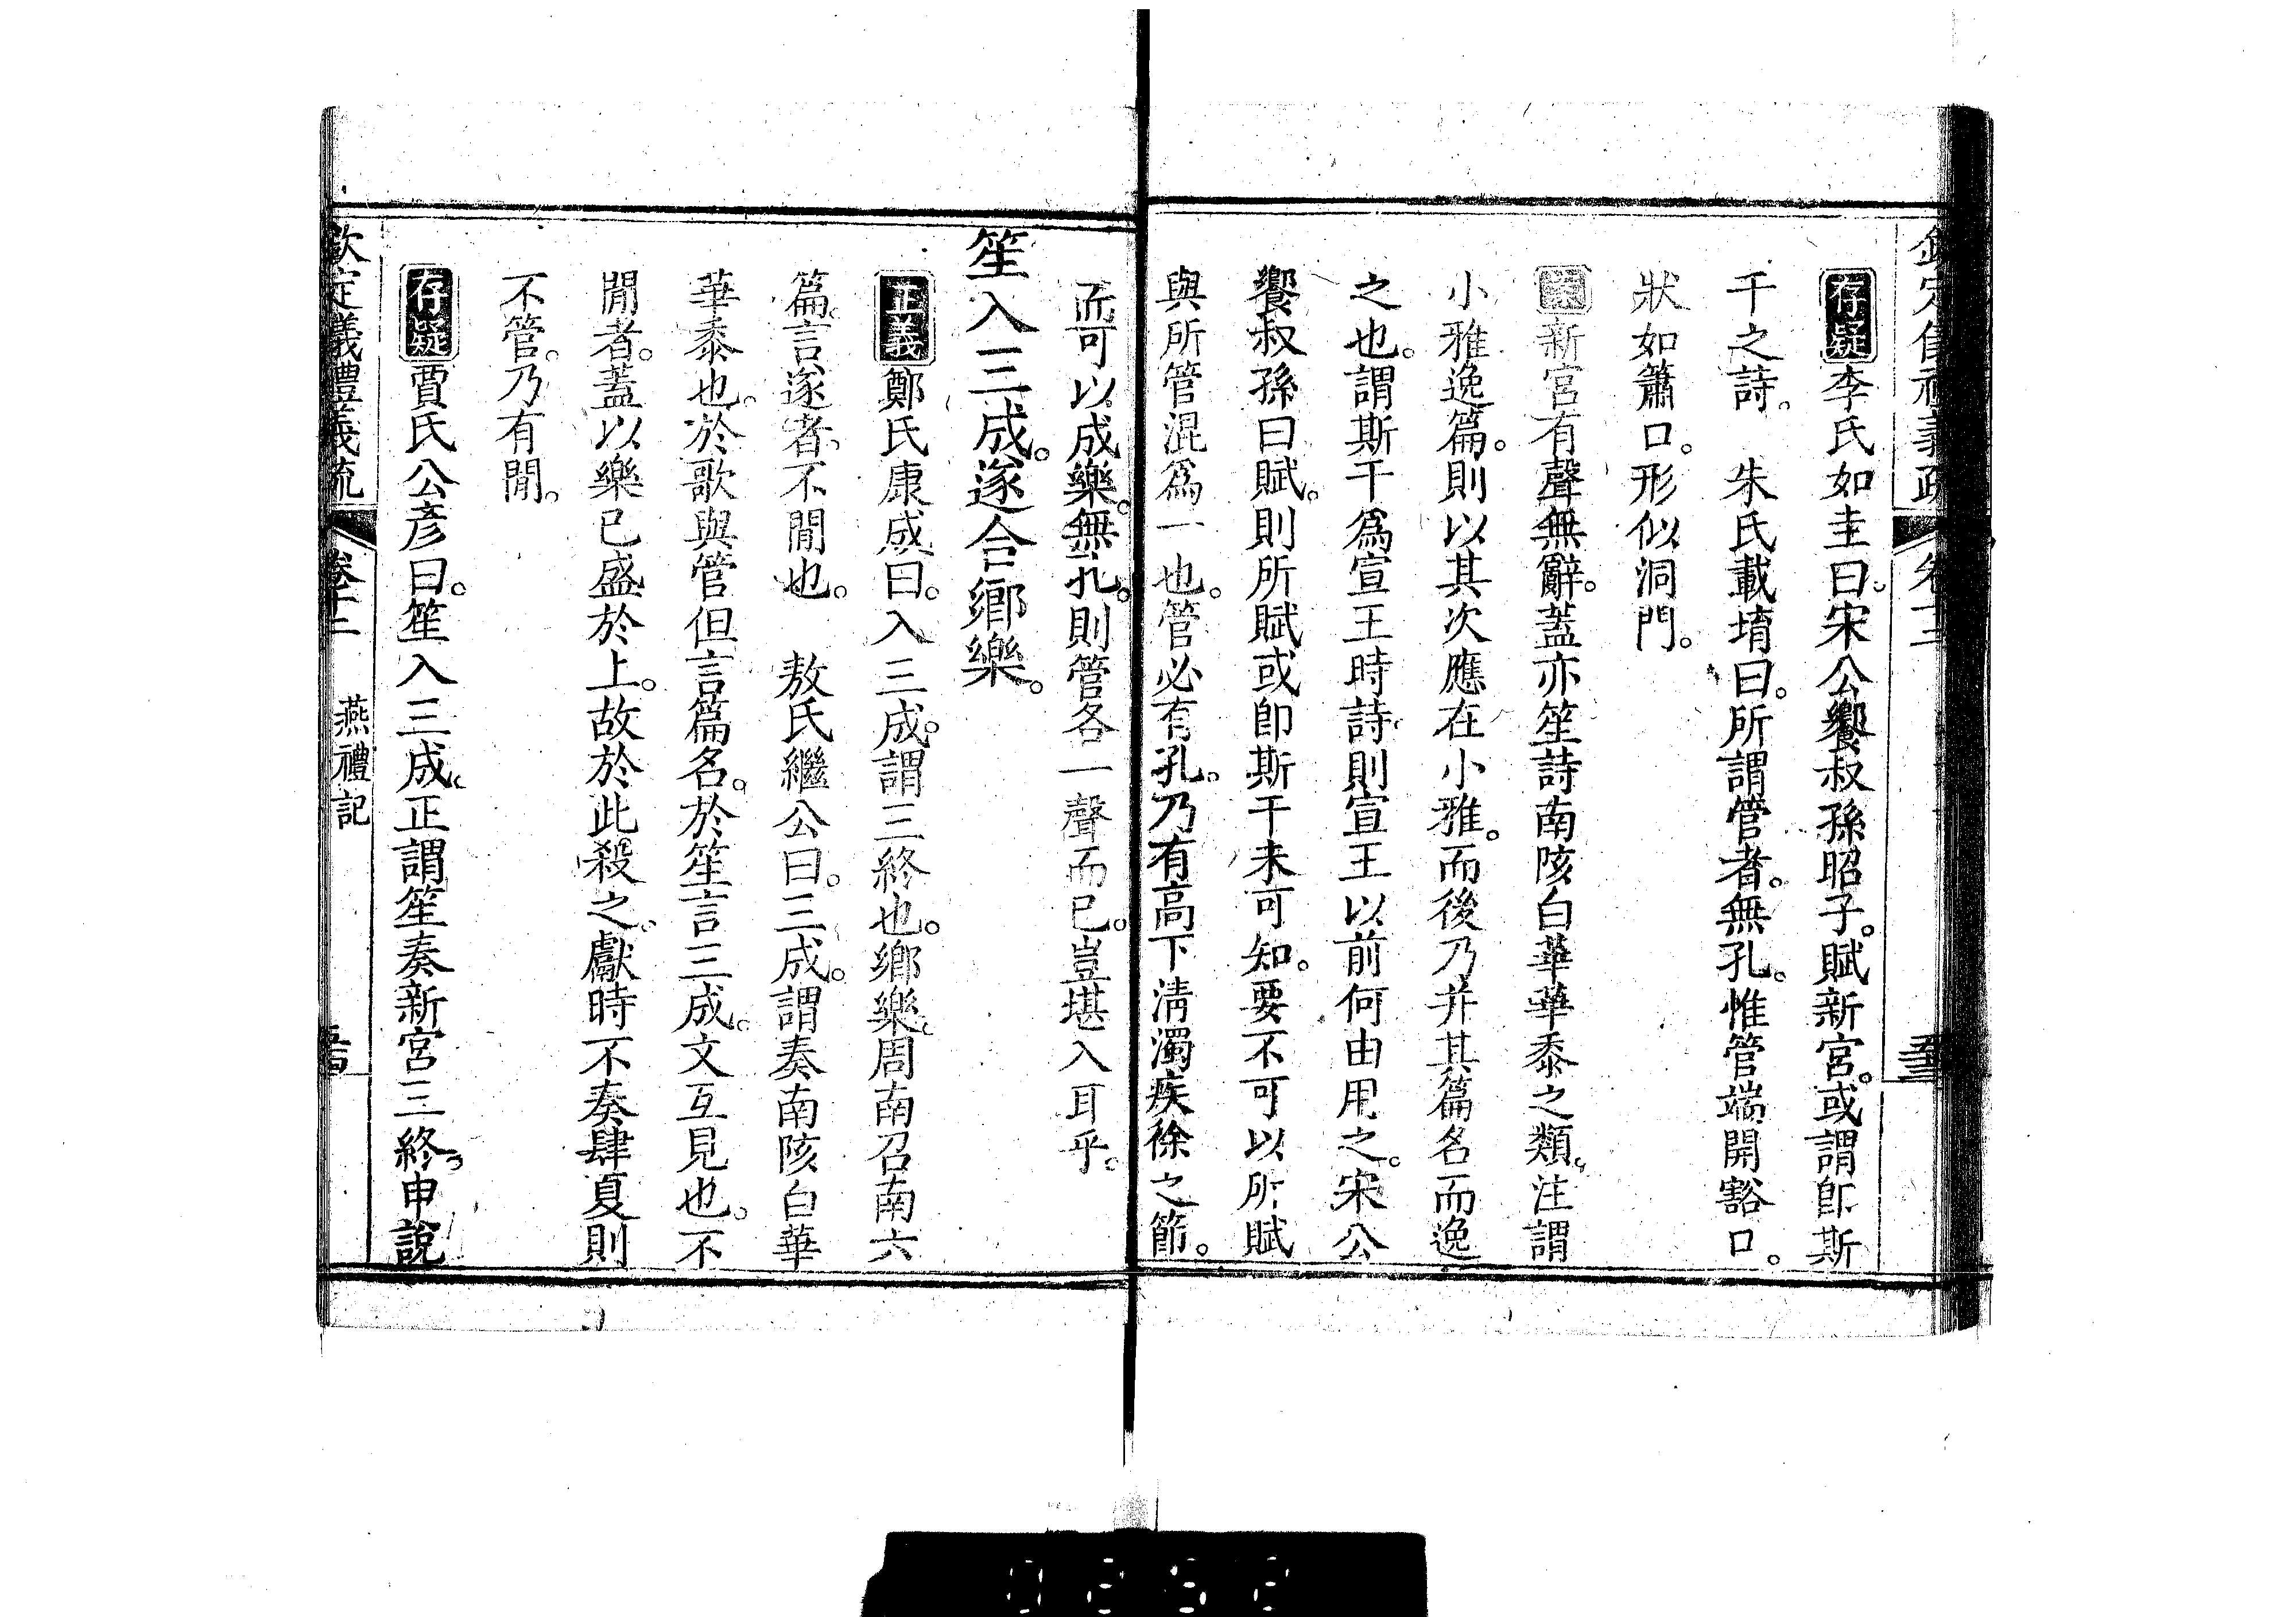 欽定儀禮義疏 卷十二 五十三
存疑李氏如圭曰宋公饗叔孫昭子。賦新宮。或謂卽斯
干之詩。 朱氏載堉曰。所謂管者。無孔。惟管端開豁口。
狀如簫口。形似洞門。
案新宮有聲無辭。蓋亦笙詩南陔白華華黍之類。注謂
小雅逸篇。則以其次應在小雅。而後乃并其篇名而逸
之也。謂斯干爲宣王時詩。則宣王以前何由用之。宋公
饗叔孫曰賦。則所賦或卽斯干未可知。要不可以所賦
與所管混爲一也。管必有孔。乃有高下淸濁疾徐之節。
而可以成樂。無孔。則管各一聲而已。豈堪入耳乎。
笙入三成。遂合鄉樂。
正義鄭氏康成曰。入三成。謂三終也。鄉樂。周南召南六
篇。言遂者。不閒也。 敖氏繼公曰。三成。謂奏南陔白華
華黍也。於歌與管但言篇名。於笙言三成。文互見也。不
閒者。蓋以樂已盛於上。故於此殺之。獻時不奏肆夏則
不管。乃有閒。
存疑賈氏公彥曰。笙入三成。正謂笙奏新宮三終。申說
欽定儀禮義疏 卷十二 燕禮記 五十四